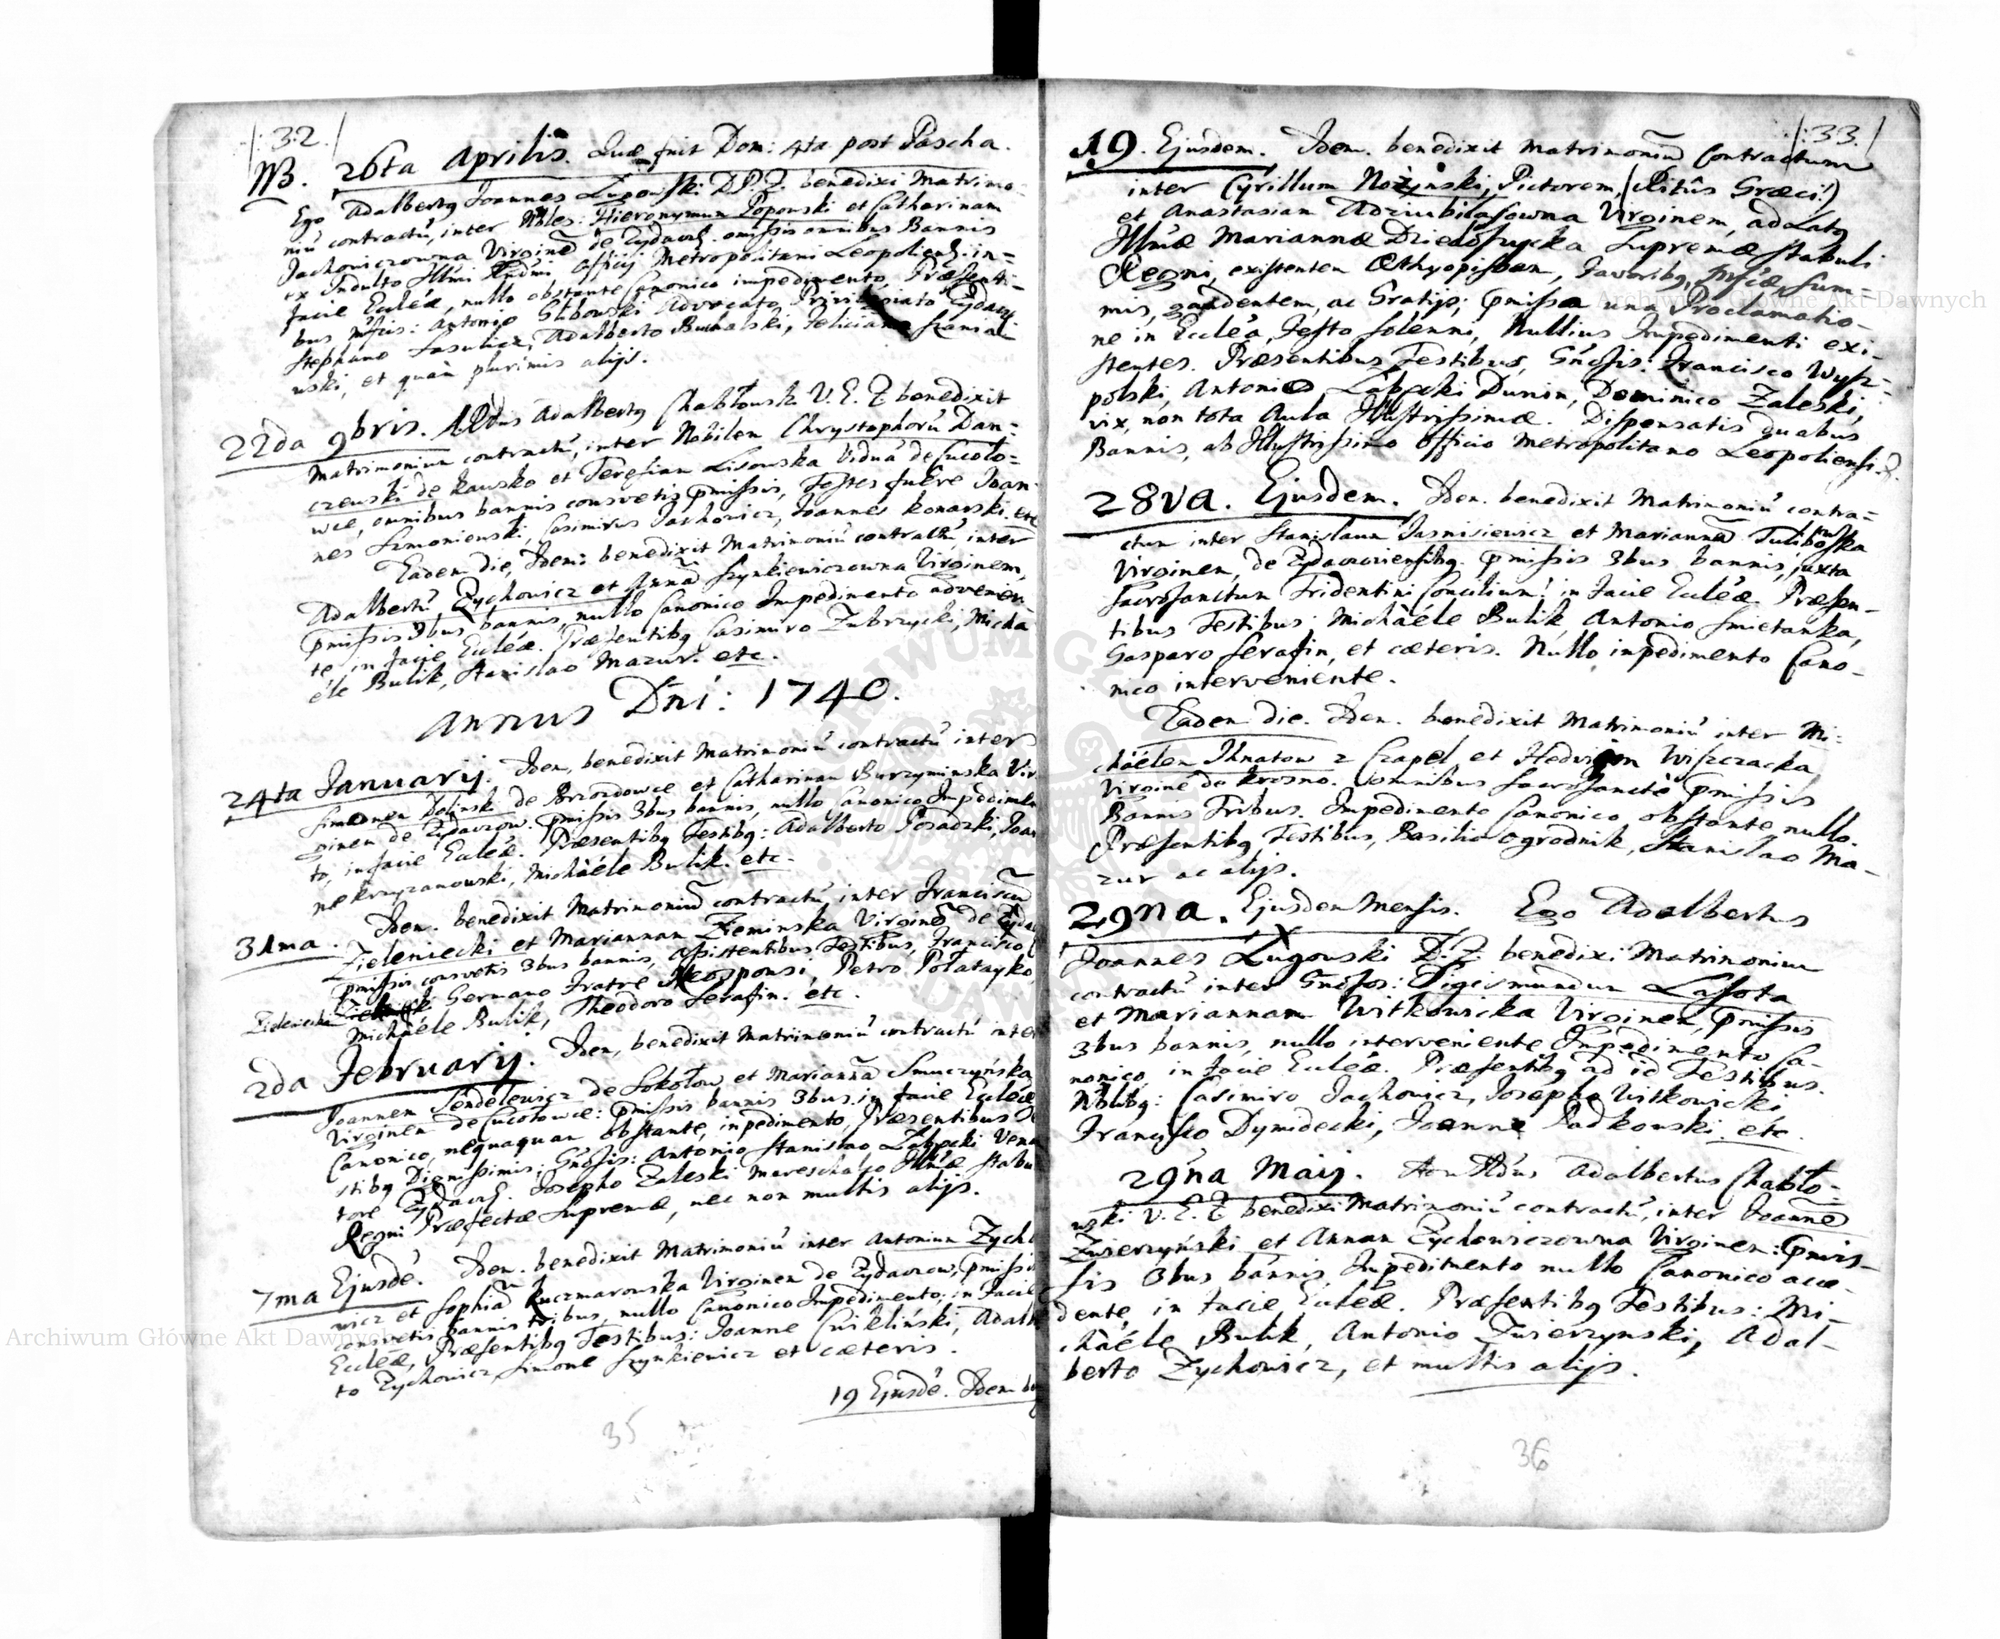 /:32./
NB. 26ta Aprilis. Quæ fuit Dom: 4ta post Pascha.
Ego Adalbertg Joannes Lugowski D.P.Z. benedixi Matrimo-
niū contractū, inter Nbles: Hieronymum Popowski et Catharinam
Jachowiczowna Virginē de Zydacz. omissis omnibus Bannis
ex Indulto Illmi Rndmi Officij Metropolitani Leopoliens. in=
facie Eccléæ, nullo obstante Canonico impedimento, Præsenti-
bus Mficis: Antonio Glibowski Advocato Privilegiato Zydacz
Stephano Sasulicz, Adalberto Buchalski, Feliciano Szansa
wski, et quàm plurimis alijs.
22da 9bris. ARdus Adalbertg Chabłowsk V. E. Z benedixit
Matrimonium contractū, inter Nobilem Chrystophorū Dan=
czewski de Kawsko et Teresiam Lisowska Viduā de Cucoło=
wce, omnibus bannis consvetis pmissis, Testes fuêre Joan
nes Szmoniewski, Casimirus Jachowicz, Joannes Konarski. etc
Eadem die, Idem: benedixit Matrimoniū contractū inter
Adalbertū Zychowicz et Annā Szynkiewiczowna Virginem,
pmissis 3bus bannis, nullo Canonico Impedimento advenien-
te, in facie Eccléæ. Præsentibg Casimiro Zubrzycki, Micha
éle Bulik, Stanislao Mazur. etc.
Annus Dñi: 1740.
24ta Januarij. Idem, benedixit Matrimoniū contractū inter
Simonem Dolinsk de Brzozdowce et Catharinam Burzyminska Vir
ginem de Zydaczow. pmissis 3bus bannis, nullo Canonico Impedimen
to, in facie Eccléæ. Præsentibg Testibg: Adalberto Posadzki, Joan
ne Krzyzanowski, Michaéle Bulik. etc.
31ma. Idem. benedixit Matrimoniū contractū, inter Franciscū
Zieleniecki et Mariannam Zieminska Virginē de Zyda
pmissis consvetis 3bus bannis, assistentibus Testibus, Francisco
Zieleniecki Germano Fratre Neosponsi, Petro Połatayko,
Michaéle Bulik, Theodoro Serafin. etc.
2da February. Idem, benedixit Matrimoniū contractū inter
Joannem Sendelewicz de Sokołow et Mariannā Smuczyńska
Virginem de Cucołowce: pmissis bannis 3bus in facie Eccléæ
Canonico, nequaquam obstante, impedimento, Præsentibus Te
stibg Dignissimis: Gnosis: Antonio Stanislao Łabęcki Vena
tore Zydacz. Josepho Zaleski Mareschalco Illmæ Stabu
Regni Præfectæ Supremæ, nec non multis alijs.
7ma Ejusdē. Idem. benedixit Matrimoniū inter Antonium Zycho
wicz et Sophiā Kuczmarowska Virginem de Zydaczow, pmissis
consvetis bannis tribus, nullo Canonico Impedimento, in facie
Eccléæ, Præsentibg Testibus: Joanne Cwikliński, Adalb
to Zychowicz, Simone Szynkiewicz et cæteris.
19 Ejusdē. Idem be
35
/:33./
19. Ejusdem. Idem. benedixit Matrimoniū Contractum
inter Cyrillum Nożynski, Pictorem, (Ritûs Græci!)
et Anastasiam Adziubilasowna Virginem, ad Latg
Illmæ Mariannæ Dzieduszycka Supremæ Stabuli
Regni, existentem Æthyopissam, Favoribg Mficæ, sum=
mis, gaudentem, ac Gratijs; pmissa una Proclamatio-
ne in Eccléa, Festo solenni, Nullius Impedimenti exi-
stentes. Præsentibus Testibus, Gnosis: Francisco Wysz=
polski, Antonio Łabęcki Dunin, Dominico Zaleski,
vix, non tota Aula Illustrissimæ. Dispensatis duabus
Bannis, ab Illustrissimo Officio Metropolitano Leopoliensi.
28va. Ejusdem. Idem. benedixit Matrimoniū contra=
ctum inter Stanislaum Jasnisiewicz et Mariannā Tulibowska
Virginem, de Zydaczowiensibg. pmissis 3bus bannis, juxta
Sacrosanctum Tridentini Concilium! in facie Eccléæ. Præsen-
tibus Testibus: Michàéle Bulik, Antonio Smietanka,
Gasparo Serafin, et cæteris. Nullo impedimento Cano-
nico interveniente.
Eadem die. Idem. benedixit Matrimoniū inter Mi-
chàélem Ihnatow z Czapel et Hedvigem Wiszczacka
Virginē de Krosno. Omnibus Sacrosanctè pmissis
Bannis Tribus. Impedimento Canonico obstante nullo.
Præsentibg Testibus, Basilio Ogrodnik, Stanislao Ma-
zur ac alijs.
29na. Ejusdem Mensis. Ego Adalbertus
Joannes Lugowski D.Z. benedixi Matrimonium
contractū inter Gnosos: Sigismundum Lassota
et Mariannam Witkowicka Virginem, pmissis
3bus bannis, nullo interveniente Impedimento Ca-
nonico, in facie Eccléæ. Præsentibg ad id Testibus.
Nbilibg: Casimiro Jachowicz, Josepho Witkowicki
Francisco Dymidecki, Joanne Sadkowski etc.
29na Maij. Adm Rdus Adalbertus Chabło-
wski V. E. Z benedixi Matrimoniū contractū, inter Joannē
Zwierzyński et Annam Zychowiczowna Virginem: pmis-
sis 3bus bannis, Impedimento nullo Canonico acce-
dente, in facie Eccléæ. Præsentibg Testibus: Mi-
chàéle Bulik, Antonio Zwierzynski, Adal-
berto Zychowicz, et multis alijs.
36
Archiwum Główne Akt Dawnych
Archiwum Główne Akt Dawnych